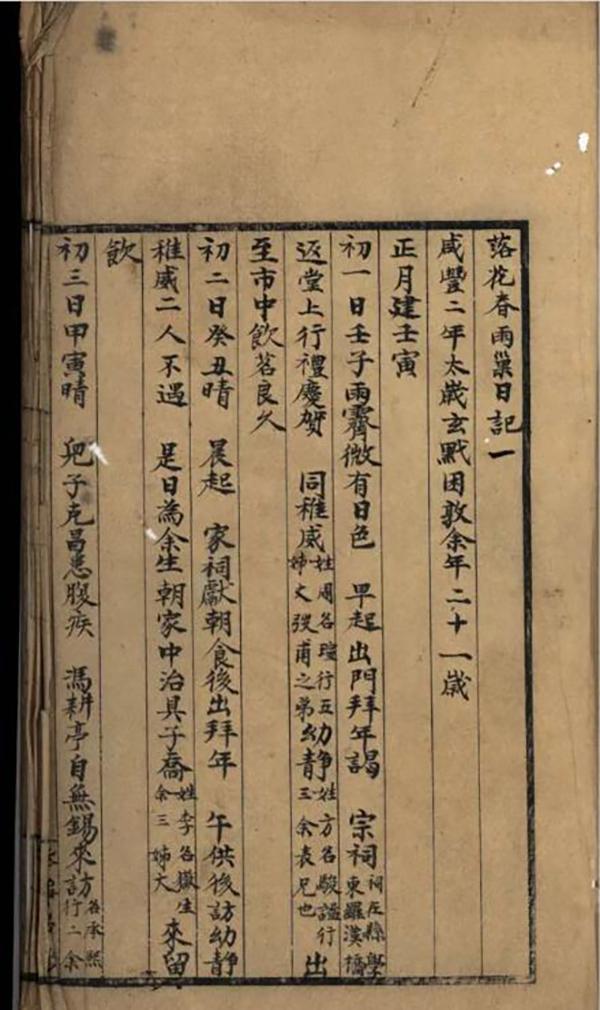 落花春雨巢日記一
咸豐二年太歲玄黓困敦余年二十一歲
正月建壬寅
初一日壬子雨霽微有日色 早起出門拜年謁 宗祠祠在縣學東羅漢橋
返堂上行禮慶賀 同稚威姓周名行五姊丈弢甫之弟幼靜姓方名駿謨行三余表兄也出
至市中飲茗良久
初二日癸丑晴 晨起 家祠獻朝食後出拜年 午供後訪幼靜
稚威二人不遇 是日為余生朝家中治具子喬姓李名嶽生余三姊丈來留
飲
初三日甲寅晴 兒子克昌患腹疾 馮耕亭自無錫來訪名承熙行二余